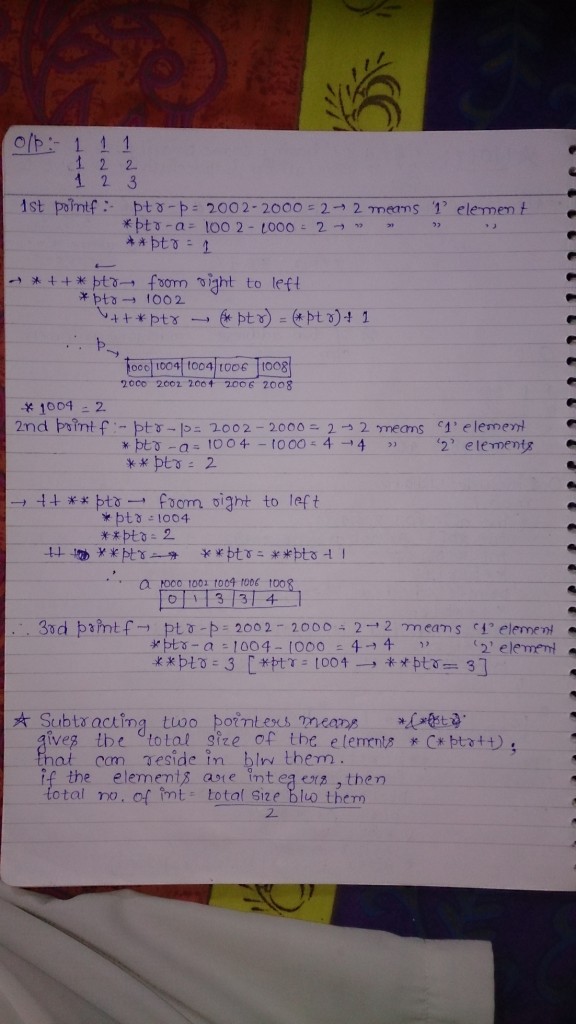 O/p:- 1 1 1
1 2 2
1 2 3
1st printf:- ptr-p = 2002-2000 = 2 → 2 means '1' element
*ptr-a = 1002-1000 = 2 → " " " "
**ptr = 1
→ *++*ptr → from right to left
*ptr → 1002
++*ptr → (*ptr) = (*ptr)+1
∴ p
1000 1004 1004 1006 1008
2000 2002 2004 2006 2008
*1004 = 2
2nd printf:- ptr-p = 2002-2000 = 2 → 2 means '1' element
*ptr-a = 1004-1000 = 4 → 4 " '2' elements
**ptr = 2
→ ++**ptr → from right to left
*ptr = 1004
**ptr = 2
++ **ptr → **ptr = **ptr+1
∴ a 1000 1002 1004 1006 1008
0 1 3 3 4
∴ 3rd printf → ptr-p = 2002-2000 = 2 → 2 means '1' element
*ptr-a = 1004-1000 = 4 → 4 " '2' element
**ptr = 3 [*ptr = 1004 → **ptr = 3]
★ Subtracting two pointers means
gives the total size of the elements *(*ptr++);
that can reside in b/w them.
if the elements are integers, then
total no. of int = total size b/w them
2